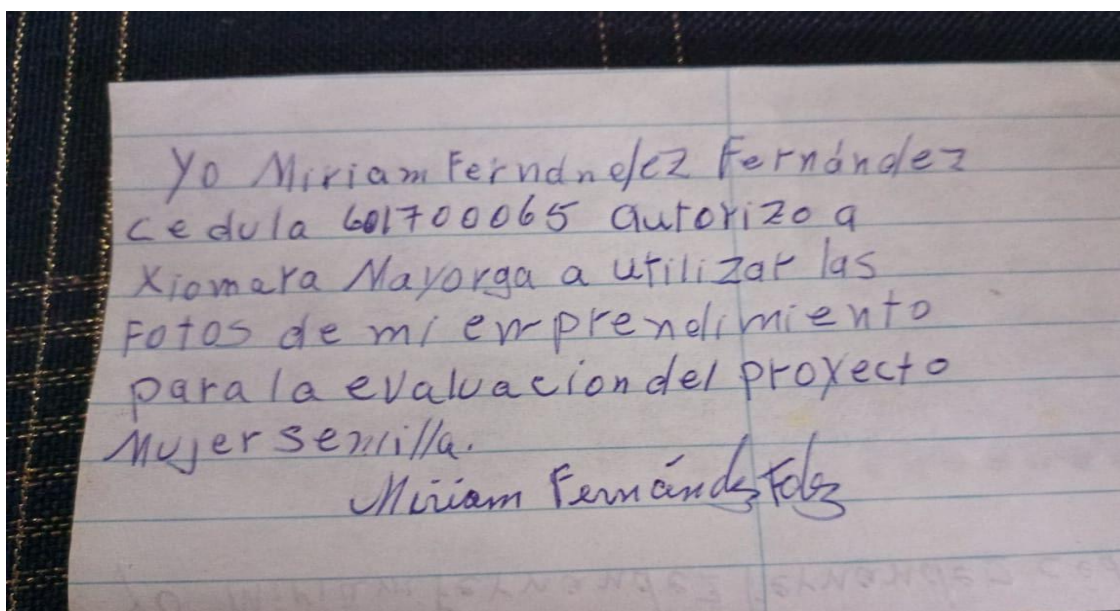 Yo Miriam Fernández Fernández
cedula 601700065 autorizo a
Xiomara Mayorga a utilizar las
Fotos de mi emprendimiento
para la evaluacion del proyecto
Mujer semilla.
Miriam Fernández Fdez